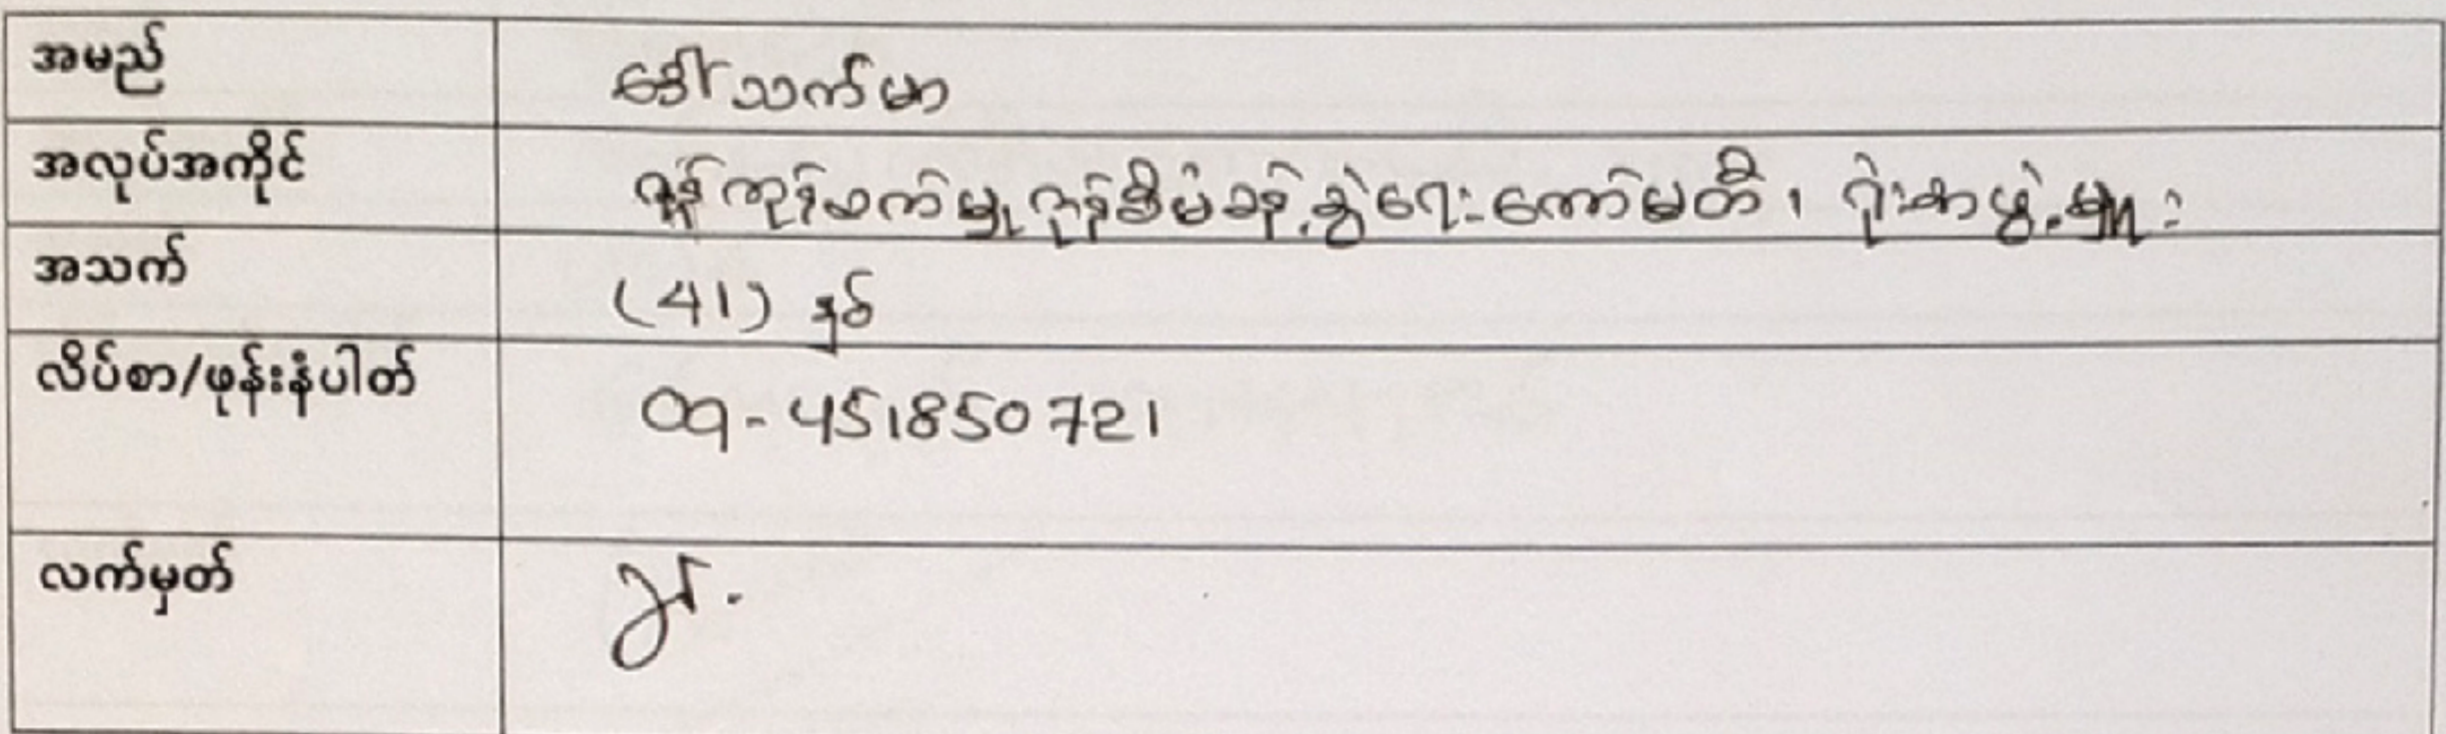 အမည် ဒေါ်သက်မာ
အလုပ်အကိုင် ကုန်စီမံခန့်ခွဲရေးကော်မတီ၊ ရုံးအဖွဲ့မှူး
အသက် (41) နှစ်
လိပ်စာ/ဖုန်းနံပါတ် 09-451850721
လက်မှတ်